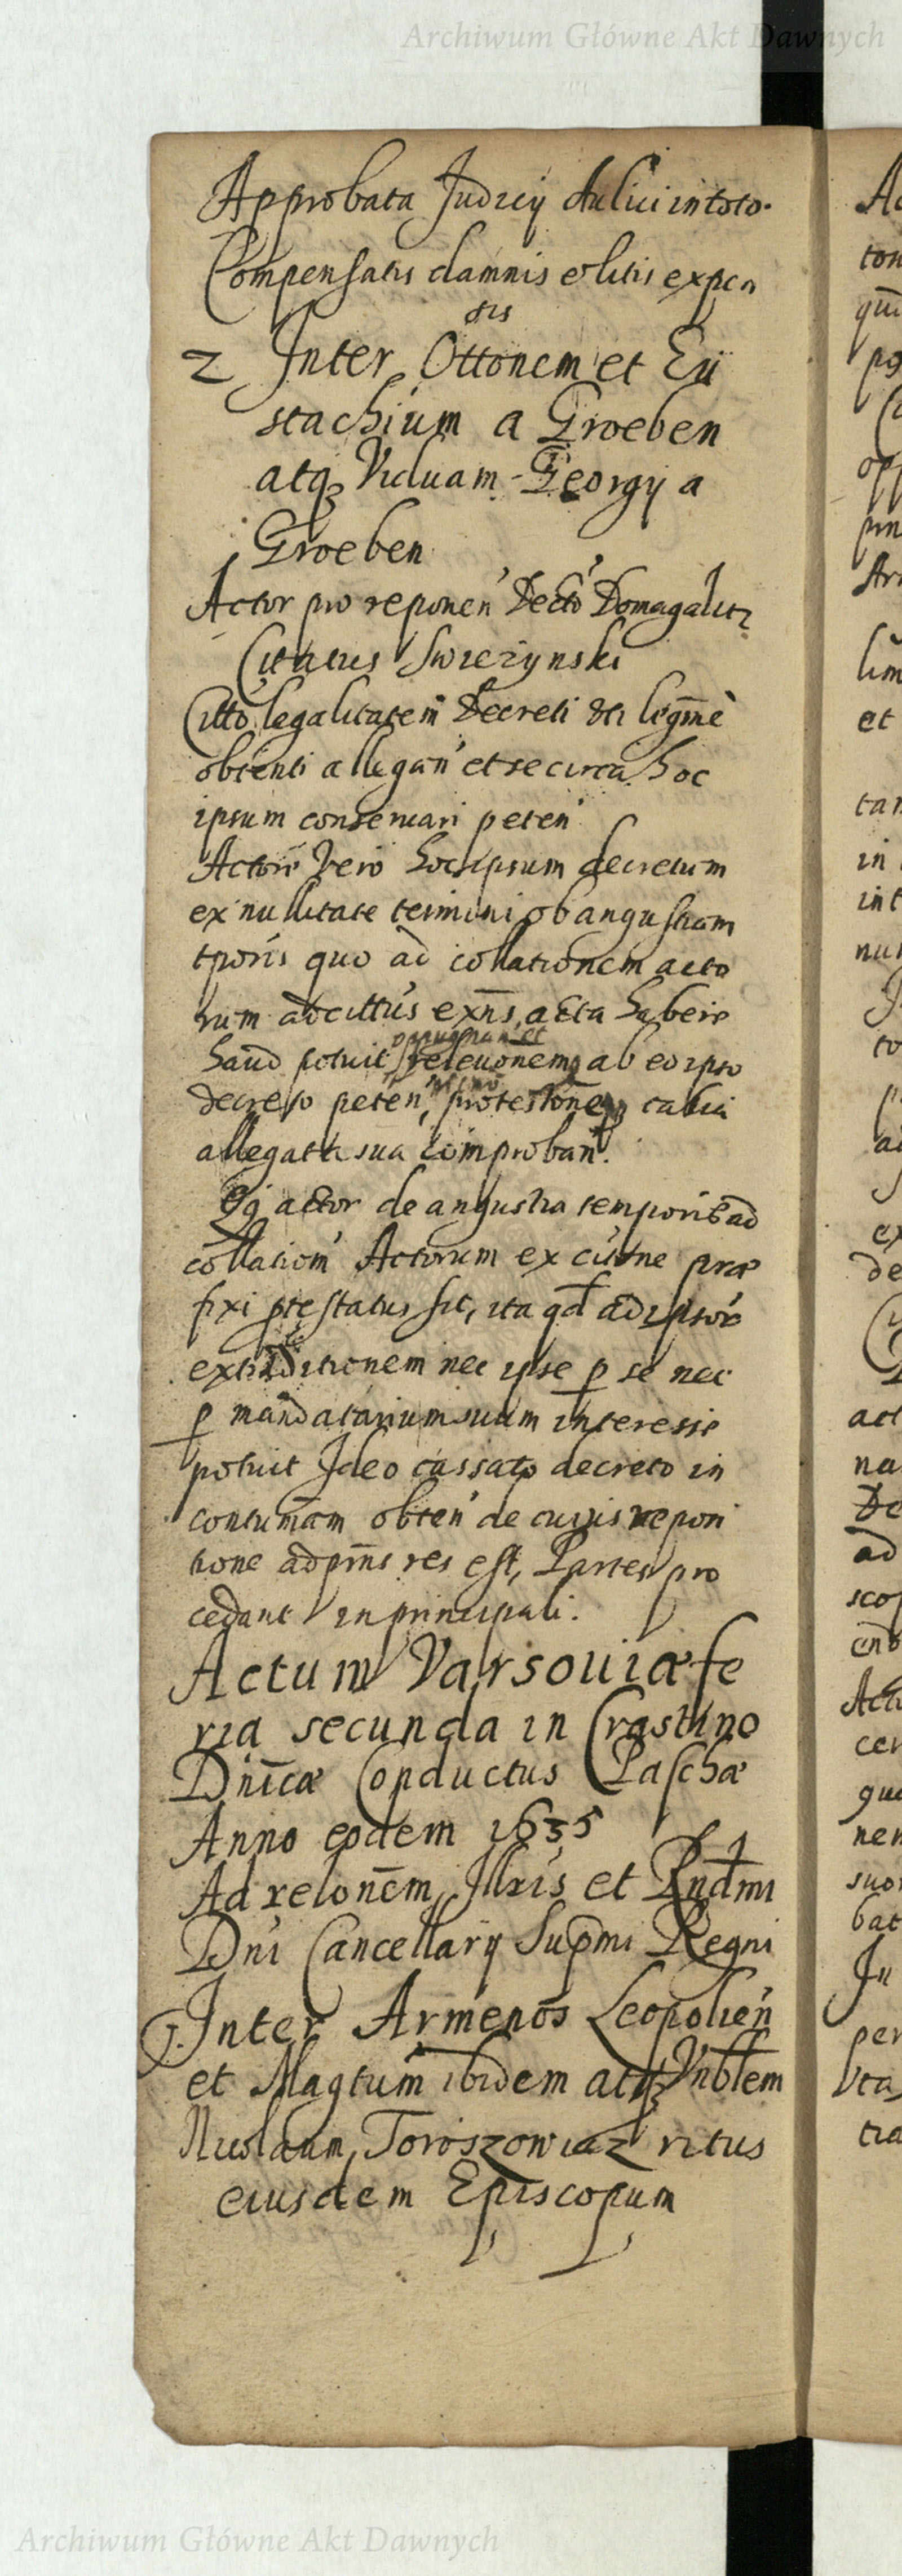 Archiwum Główne Akt Dawnych
Approbata Judicij Aulici in toto.
Compensatis damnis et litis expen
sis
2 Inter Ottonem et Eu
stachium a Groeben
atq₃ Viduam Georgij a
Groeben
Actor pro reponen' Decto' Domagalicz
Citatus Swiezynski
Citto legalitatem Decreti
obtenti allegan' et se circa hoc
ipsum conseruari peten'
Actore Vero hoc ipsum decretum
ex nullitate termini ob angustiam
tporis quo ad collationem acto
rum exns, acta habere
oppugnan et
haud potuit releuonemq ab eo ipso
decreto peten', protestone
allegata sua comproban'.
actor de angustia temporis ad
collationem Actorum ex citone præ
fixi ptestatus sit, ita qd ad ipsor
extraditionem nec ipse p se nec
p mandatarium suum interesse
potuit Ideo cassato decreto in
contumam obten' de cuius reponi
tione ad pms res est, Partes pro
cedant in principali.
Actum Varsouiæ fe
ria secunda in Crastino
Dnicæ Conductus Paschæ
Anno eodem 1635
Ad relonem Illris et Rndmi
Dni Cancellarij Supmi Regni
Inter Armenos Leopolien'
et Magtum ibidem atq₃ Vnblem
Nicolaum Toroszowicz ritus
eiusdem Episcopum
Archiwum Główne Akt Dawnych